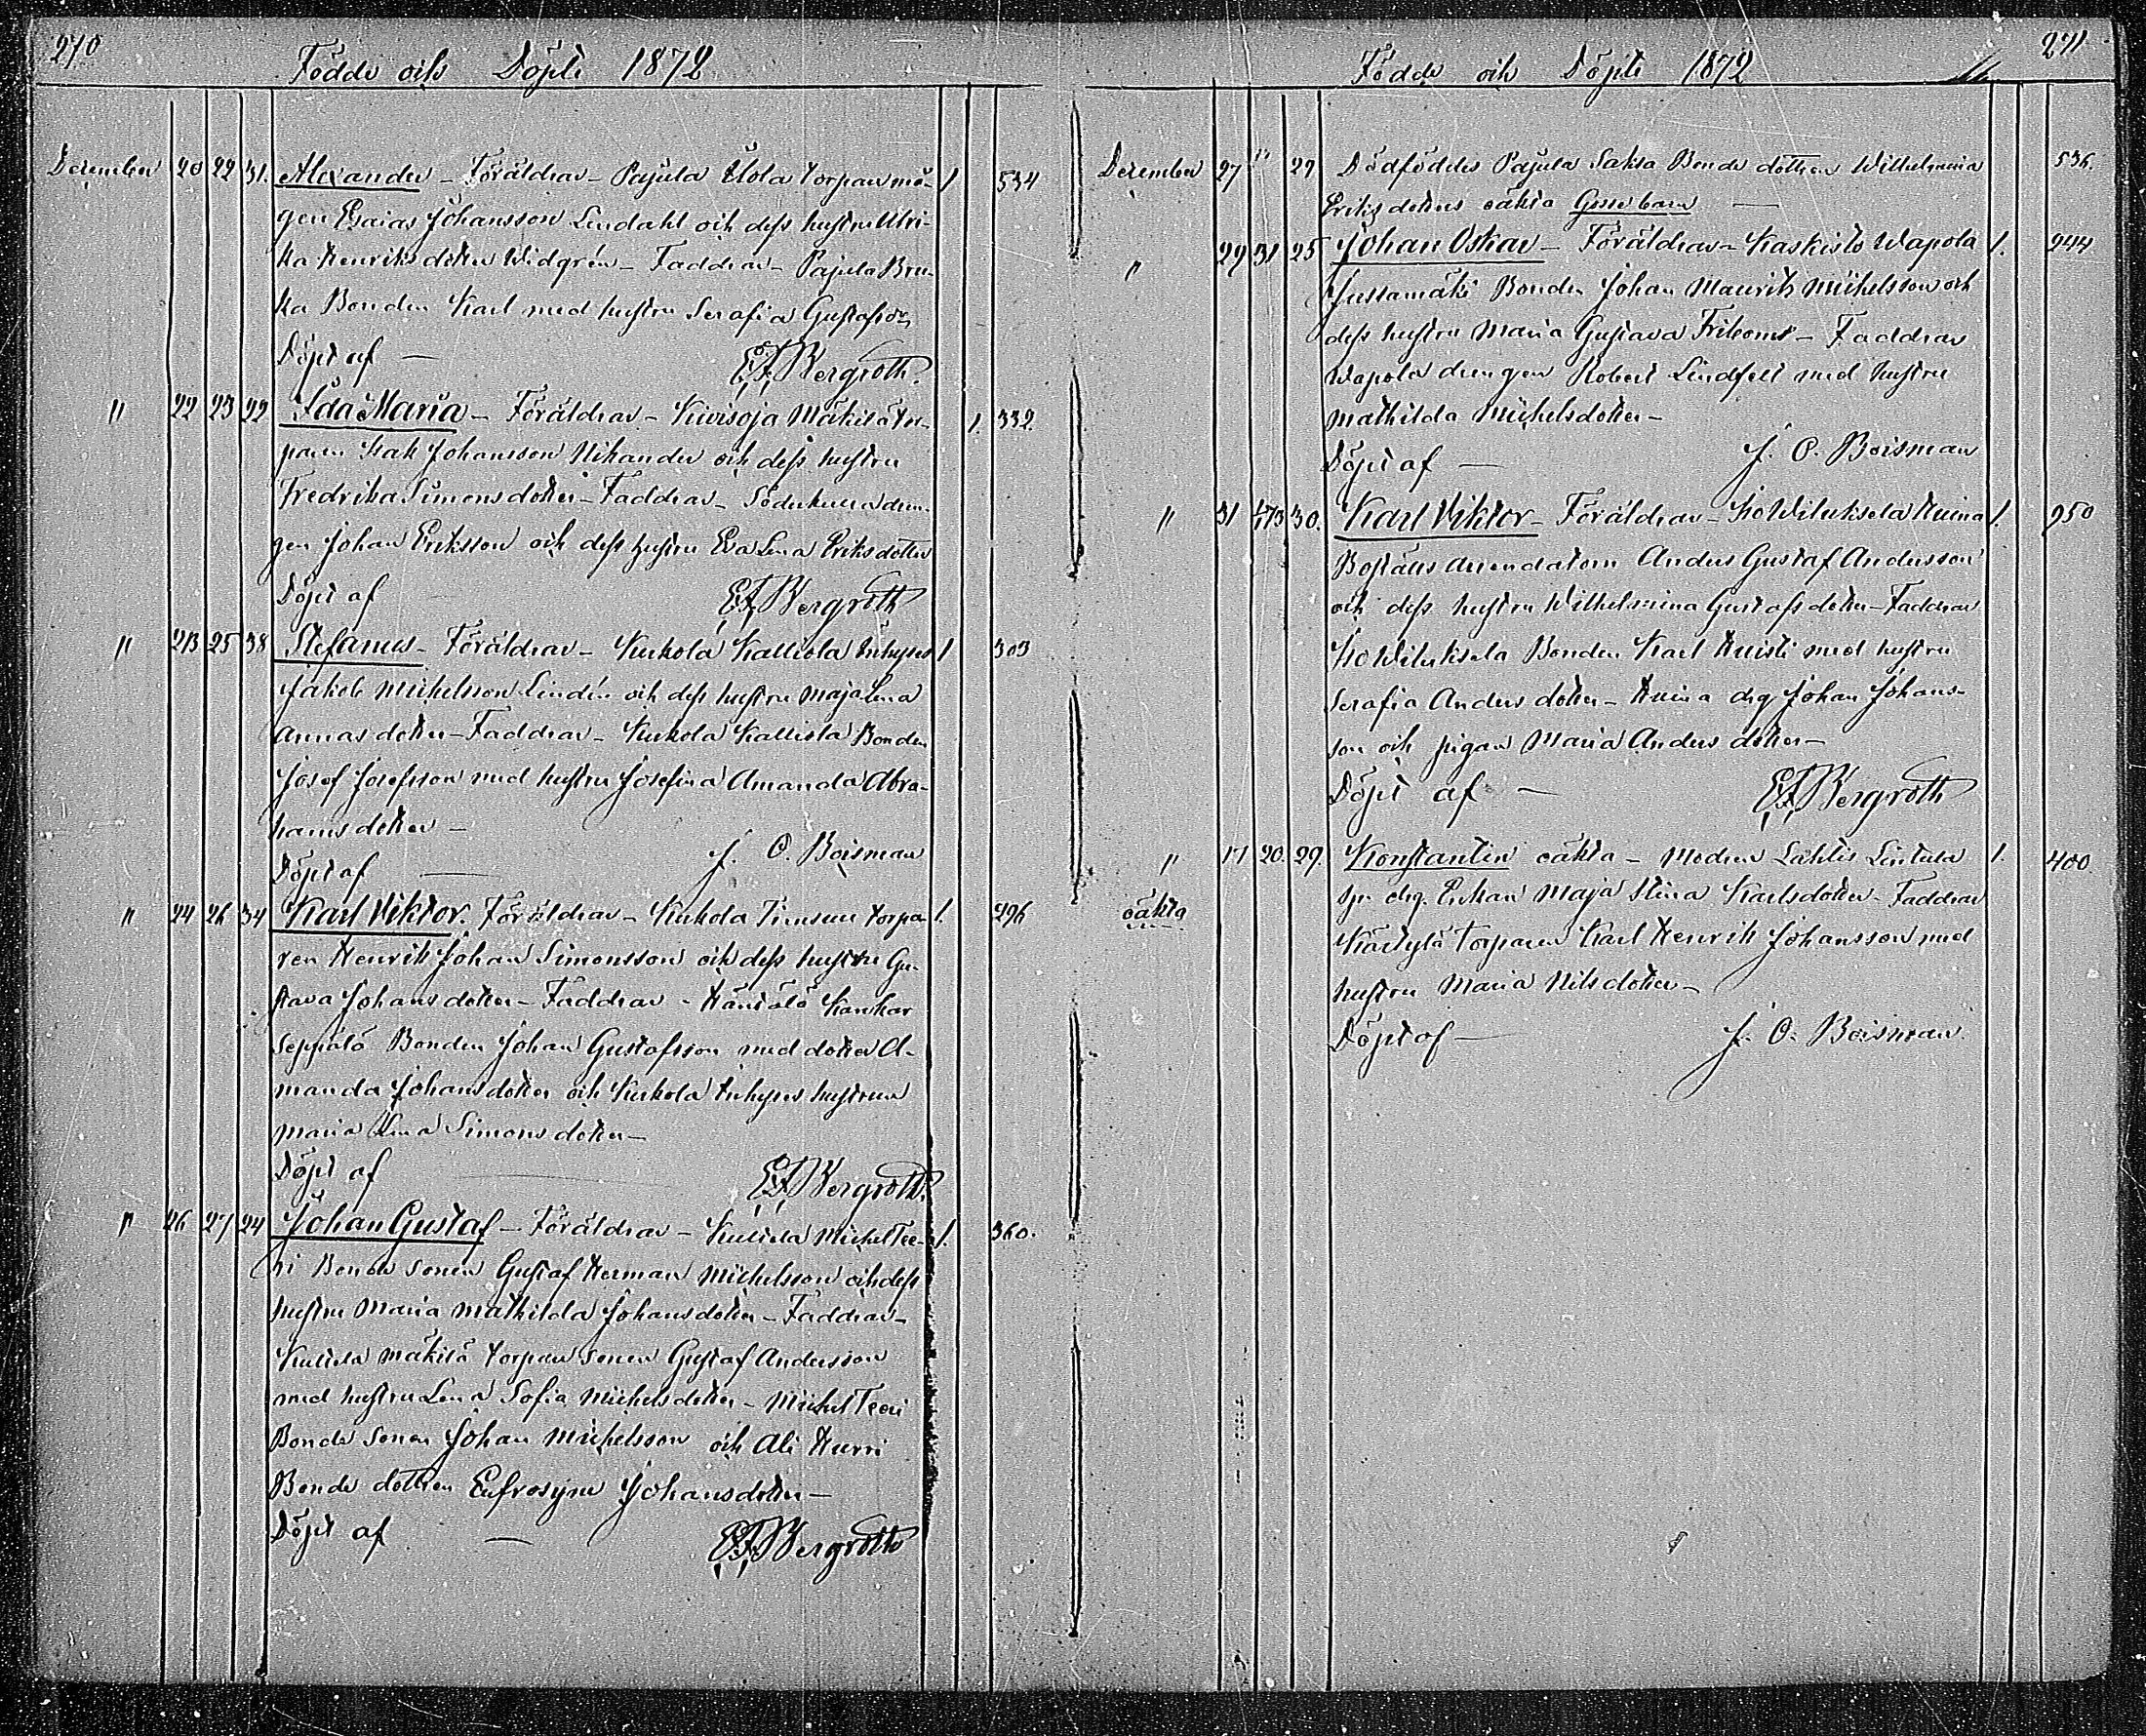 270
Födde och Döpte 1872
December 20 22 31. Alexander – Föräldrar – Pajula Ulola torpare må- 1 534
gen Esaias Johansson Lindahl och dess hustru Ulri-
ka Henriksdotter Widgrén – Faddrar – Pajula Bru-
ka Bonden Karl med hustru Serafia Gustafsdr
Döpt af — E. F. Bergroth.
" 22 23 22 Ida Maria – Föräldrar – Kivisoja Mäkilä tor- 1. 332.
paren Isak Johansson Nikander och dess hustru
Fredrika Simonsdotter – Faddrar – Söderkulla drän-
gen Johan Eriksson och dess hustru Eva Lena Eriksdotter
Döpt af — E. F. Bergroth
" 23 25 38 Stefanus – Föräldrar – Kurkola Kalliola Inhyses 1 303
Jakob Michelsson Lindén och dess hustru Maja Lena
Annasdotter – Faddrar – Kurkola Kalliola Bonden
Josef Josefsson med hustru Josefina Amanda Abra-
hamsdotter –
Döpt af — J. O. Boisman
" 24 26 34 Karl Viktor. Föräldrar – Kurkola torpa- 1. 296
ren Henrik Johan Simonsson och dess hustru Gu-
stava Johansdotter – Faddrar – Häntälä Kankar
Seppälä Bonden Johan Gustafsson med dotter A-
manda Johansdotter och Kurkola Inhyses hustrun
Maria Lena Simonsdotter –
Döpt af — E. F. Bergroth.
" 26 27 24 Johan Gustaf – Föräldrar – Kultela Michel Tee- 1. 360.
ri Bonde sonen Gustaf Herman Michelsson och dess
hustru Maria Mathilda Johansdotter – Faddrar –
Kultela Mäkilä torpare sonen Gustaf Andersson
med hustru Lena Sofia Michelsdotter – Michel Teeri
Bonde sonen Johan Michelsson och Ali Hurri
Bonde dottren Eufrosyne Johansdotter –
Döpt af — E. F. Bergroth
271
Födde och Döpte 1872
December 27 " 29 Dödföddes Pajula Saksa Bonde dottren Wilhelmina 536.
Eriksdotters oäkta Gossebarn —
" 29 31 25 Johan Oskar – Föräldrar – Kaskisto Wapola 1. 244
Jussamäki Bonden Johan Maurits Michelsson och
dess hustru Maria Gustava – Faddrar
Wapola drengen Robert Lindfelt med hustru
Mathilda Michelsdotter –
Döpt af — J. O. Boisman
" 31 1/1 73 30. Karl Viktor – Föräldrar – Ihowiluksela Huina 1. 250
Boställs arrendatorn Anders Gustaf Andersson
och dess hustru Wilhelmina Gustafsdotter – Faddrar
Bonden Karl Huisti med hustru
Serafia Andersdotter – Huina drg Johan Johans-
son och pigan Maria Andersdotter –
Döpt af — E. F. Bergroth
" 17 20. 29. Konstantin oäkta – Modren Lahtis Lintula 1. 400.
oäkta drg. Enkan Maja Stina Karlsdotter – Faddrar
torparen Karl Henrik Johansson med
hustru Maria Nilsdotter –
Döpt af — J. O. Boisman.